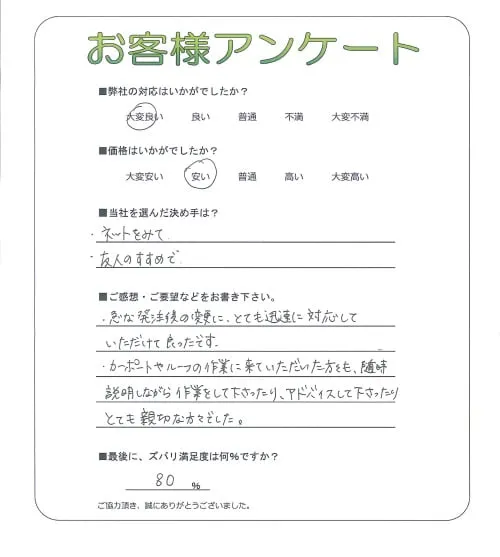 お客様アンケート
■弊社の対応はいかがでしたか？
大変良い 良い 普通 不満 大変不満
■価格はいかがでしたか？
大変安い 安い 普通 高い 大変高い
■当社を選んだ決め手は？
・ネットをみて
・友人のすすめで
■ご感想・ご要望などをお書き下さい。
・急な発注後の変更に、とても迅速に対応して
いただけて良ったです。
・カーポートやルーフの作業に来ていただいた方も、随時
説明しながら作業をして下さったり、アドバイスして下さったり
とても親切な方々でした。
■最後に、ズバリ満足度は何％ですか？
80 ％
ご協力頂き、誠にありがとうございました。